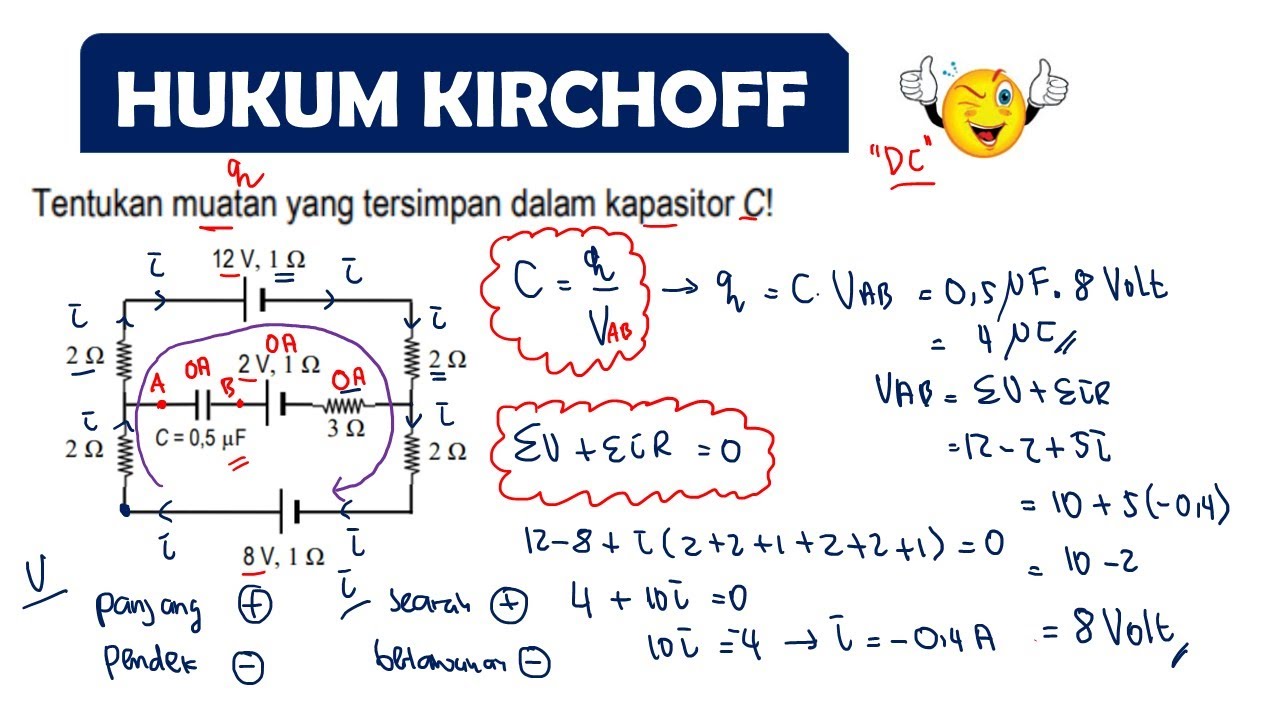 HUKUM KIRCHOFF
"DC"
q
Tentukan muatan yang tersimpan dalam kapasitor C!
i 12 V, 1 Ω i
i i
2 Ω 0A 0A 2 V, 1 Ω 0A 2 Ω
A B
i i
2 Ω C = 0,5 μF 3 Ω 2 Ω
i 8 V, 1 Ω i
C = q / VAB → q = C. VAB = 0,5 μF. 8 Volt
= 4 μC //
VAB = ΣV + ΣiR
= 12 - 2 + 5i
= 10 + 5(-0,4)
= 10 - 2
= 8 Volt //
ΣV + ΣiR = 0
12 - 8 + i (2+2+1+2+2+1) = 0
4 + 10i = 0
10i = -4 → i = -0,4 A
V
panjang +
pendek -
i
searah +
berlawanan -